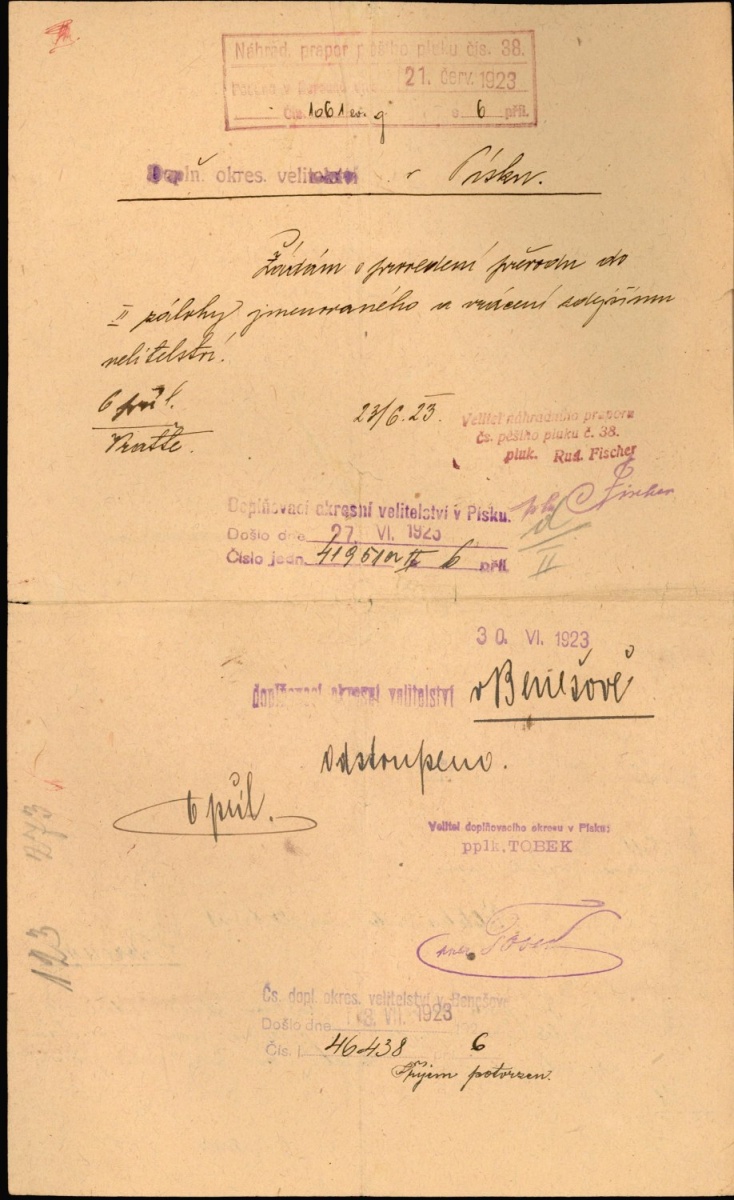 Náhrad. prapor pěšího pluku čís. 38.
21. červ. 1923
Čís. 1061 6 příl.
Dopln. okres. velitelství v Písku.
Žádám o provedení převodu do
II zálohy jmenovaného a vrácení zdejšímu
velitelství.
6 příl.
Vraťte.
23/6.23.
Velitel náhradního praporu
čs. pěšího pluku č. 38.
pluk. Rud. Fischer
Fischer
Doplňovací okresní velitelství v Písku.
Došlo dne 27. VI. 1923
Číslo jedn. 6 příl.
II
30. VI. 1923
doplňovací okresní velitelství v Benešově
Odstoupeno.
6 příl.
Velitel doplňovacího okresu v Písku:
pplk. TOBEK
273
123
Čs. dopl. okres. velitelství v Benešově
Došlo dne 3. VII. 1923
Čís. 46438 6
Příjem potvrzen.